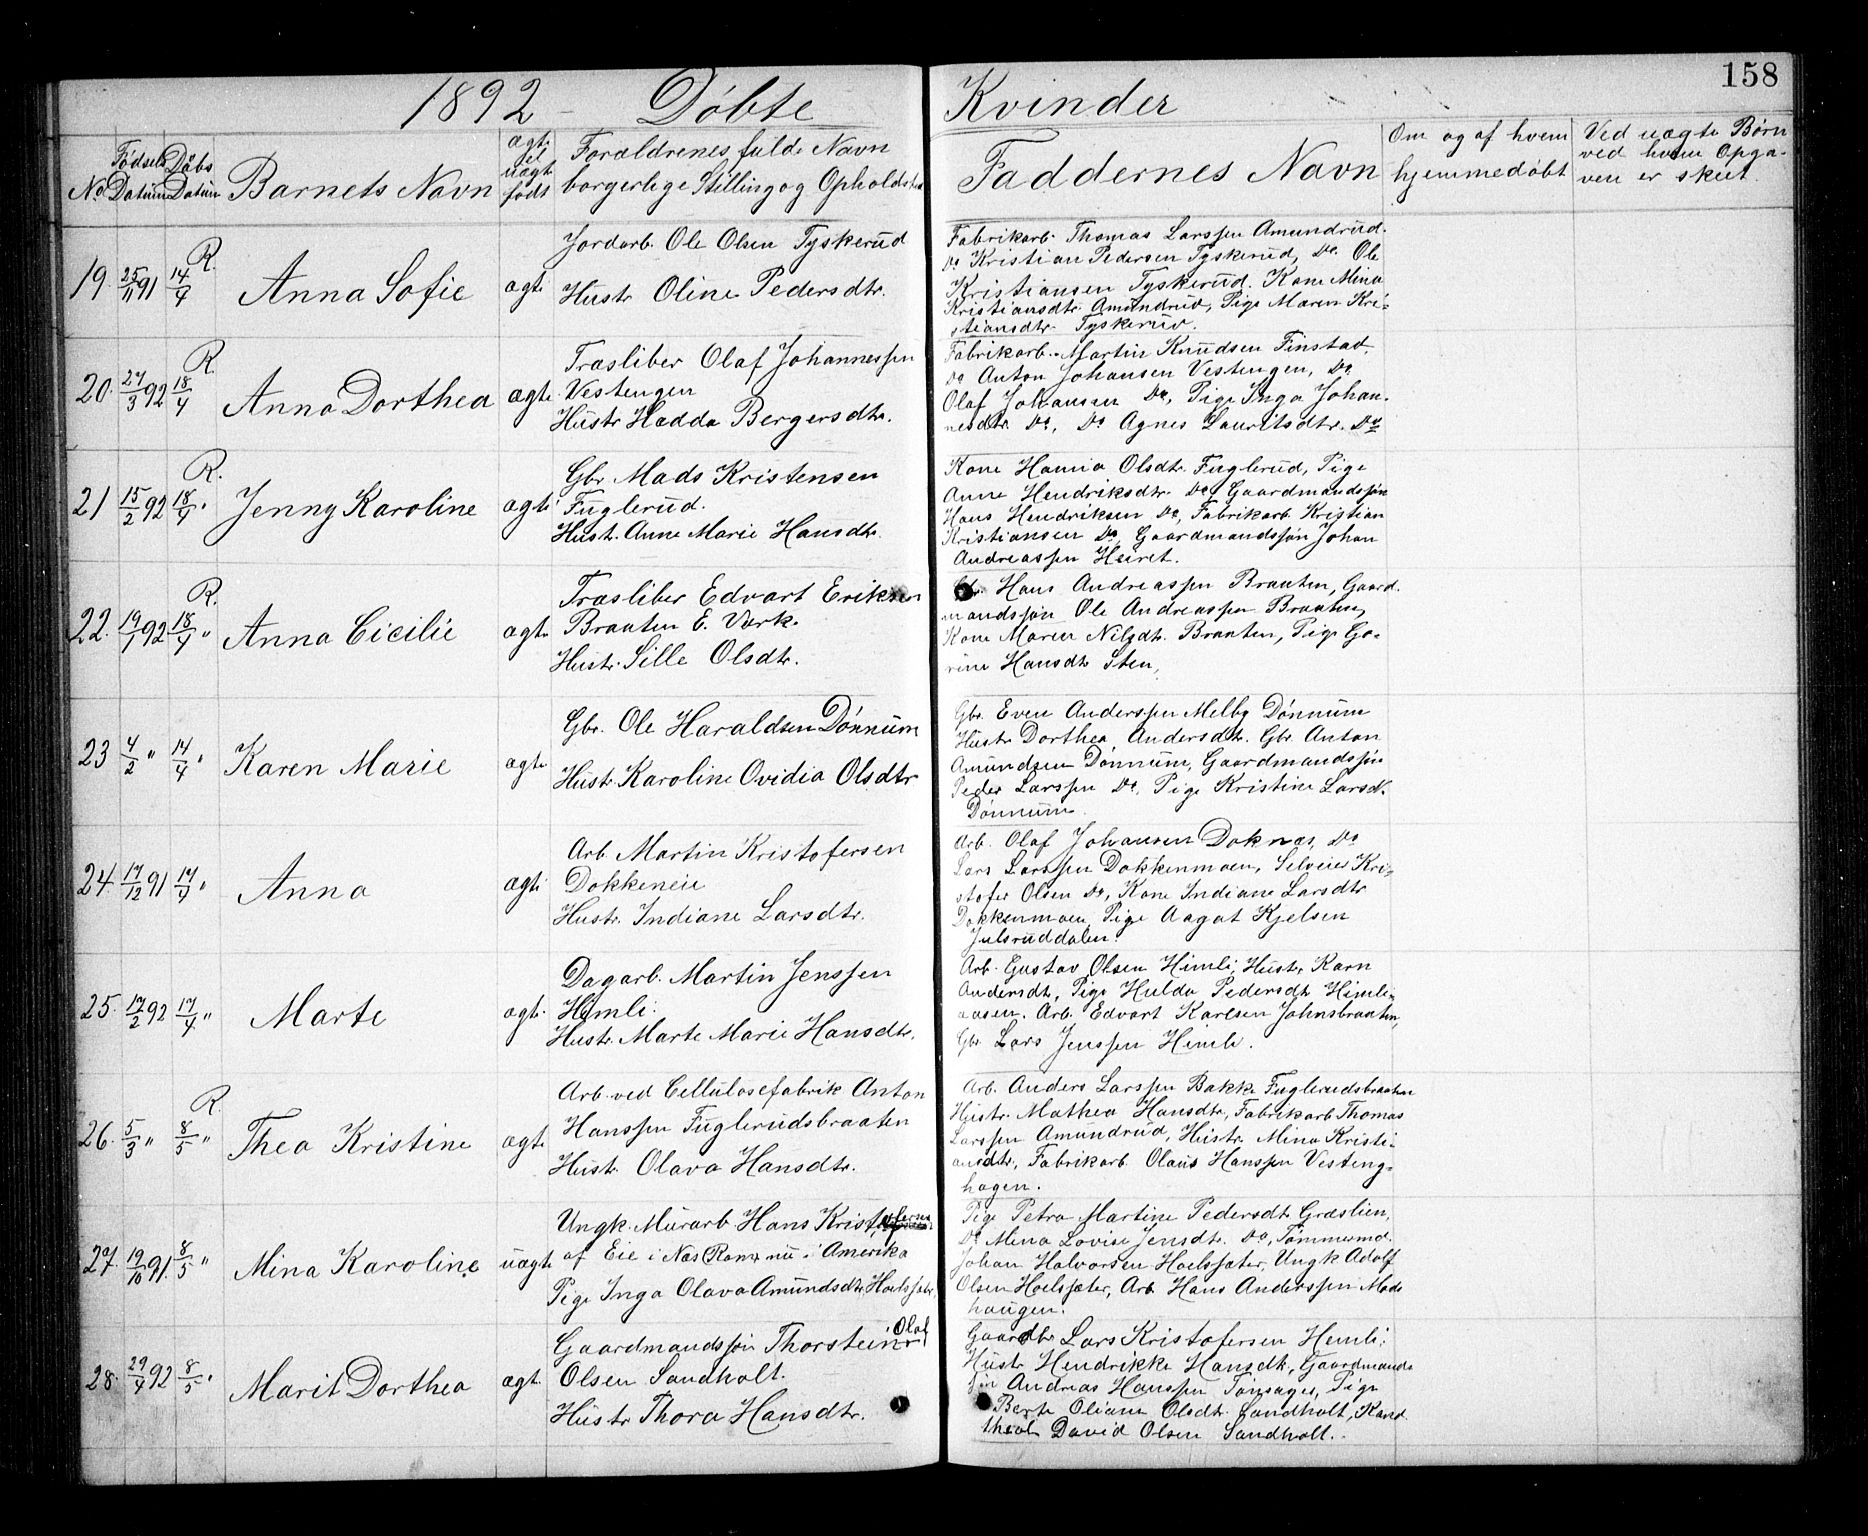 158
1892 Döbte Kvinder
No
Fødsels Datum
Döbs Datum
Barnets Navn
ægte el uægte født
Forældrenes fulde Navn
borgerlige Stilling og Opholdst
Faddernes Navn
Om og af hvem
hjemmedøbt
Ved uægte Børn
ved hvem Opga-
ven er skeet
19. 25/11 91 14/4 R. Anna Sofie ægte
Jordarb. Ole Olsen Tyskerud
Hustr Oline Pedersdtr.
Fabrikarb. Thomas Larssen Amundrud.
Do Kristian Pedersen Tyskerud, Do. Ole
Kristiansen Tyskerud. Kone Mina
Kristiansdtr. Amundrud, Pige Maren Kri-
stiansdtr. Tyskerud.
20. 27/3 92 18/4 R. Anna Dorthea ægte
Træsliber Olaf Johannessen
Vestengen
Hustr Hadda Bergersdtr.
Fabrikarb. Martin Knudsen Finstad,
Do Anton Johansen Vestengen, Do
Olaf Johansen Do, Pige Inga Johan-
nesdtr. Do, Do Agnes Lauritsdtr. Do
21 15/2 92 18/4 R. Jenny Karoline ægte
Gbr. Mads Kristensen
Fuglerud.
Hustr. Anne Marie Hansdtr.
Kone Hania Olsdtr. Fuglerud, Pige
Anne Hendriksdtr. Do, Gaardmandssøn
Hans Hendriksen Do, Fabrikarb. Kristian
Kristiansen Do, Gaardmandssøn Johan
Andreassen Heiret.
22. 19/1 92 18/4 " R. Anna Cicilie ægte
Træsliber Edvart Eriksen
Braaten E. Værk.
Hustr. Sille Olsdtr.
Hans Andreassen Braaten, Gaard-
mandssøn Ole Andreassen Braaten,
Kone Maren Nilsdtr. Braaten, Pige Ga-
rine Hansdtr Sten,
23 4/2 " 14/4 " Karen Marie ægte
Gbr. Ole Haraldsen Dönnum
Hustr. Karoline Ovidia Olsdtr
Gbr. Even Anderssen Melby Dönnum
Hustr Dorthea Andersdtr. Gbr Anton
Amundsen Dönnum, Gaardmandssøn
Peder Larssen Do. Pige Kristine Larsd.
Dönnum
24. 17/12 91 17/4 " Anna ægte
Arb. Martin Kristofersen
Dokkeneie
Hustr. Indiane Larsdtr.
Arb. Olaf Johansen Doknæs, Do
Lars Larssen Dokkenmoen, Selveier Kri-
stofer Olsen Do, Kone Indiane Larsdtr
Dokkenmoen, Pige Aagot Kjelsen
Julsruddalen.
25. 17/2 92 17/4 " Marte ægte.
Dagarb. Martin Jenssen
Himli.
Hustr. Marte Marie Hansdtr.
Arb. Gustav Olsen Himli, Hustr. Karn
Andersdt, Pige Hulda Pedersdt Himli-
aasen. Arb. Edvart Karlsen Johnsbraaten,
Gbr Lars Jenssen Himli.
26. 5/3 " 8/5 " R. Thea Kristine ægte
Arb. ved Cellulosefabrik Anton
Hanssen Fuglerudsbraaten
Hustr. Olava Hansdtr.
Arb. Anders Larssen Bakk Fuglerudsbraaten
Hustr. Mathea Hansdtr, Fabrikarb Thomas
Larssen Amundrud, Hustr. Mina Kristi-
ansdtr, Fabrikarb. Olaus Hanssen Vesteng-
hagen.
27. 19/10 91. 8/5 " Mina Karoline uægte
Ungk. Murarb Hans Krist
af Eie i Næs Rom. nu i Amerika
Pige Inga Olava Amundsdtr. Hoelssæter.
Pige Petra Martine Pedersdt Græslien,
Do Mina Lovise Jensdtr. Do, Tømmermd.
Johan Halvorsen Hoelssæter, Ungk Adolf
Olsen Hoelssæter, Arb. Hans Anderssen Mads
haugen.
28. 29/4 92 8/5 Marit Dorthea ægt.
Gaardmandssøn Thorstein Olaf
Olsen Sandholt.
Hustr Thora Hansdtr.
Gaardbr Lars Kristofersen Himli.
Hustr Hendrikke Hansdtr, Gaardmands
søn Andreas Hanssen Tonsager, Pige
Berte Oliane Olsdtr. Sandholt, Kand.
theol David Olsen Sandholt.